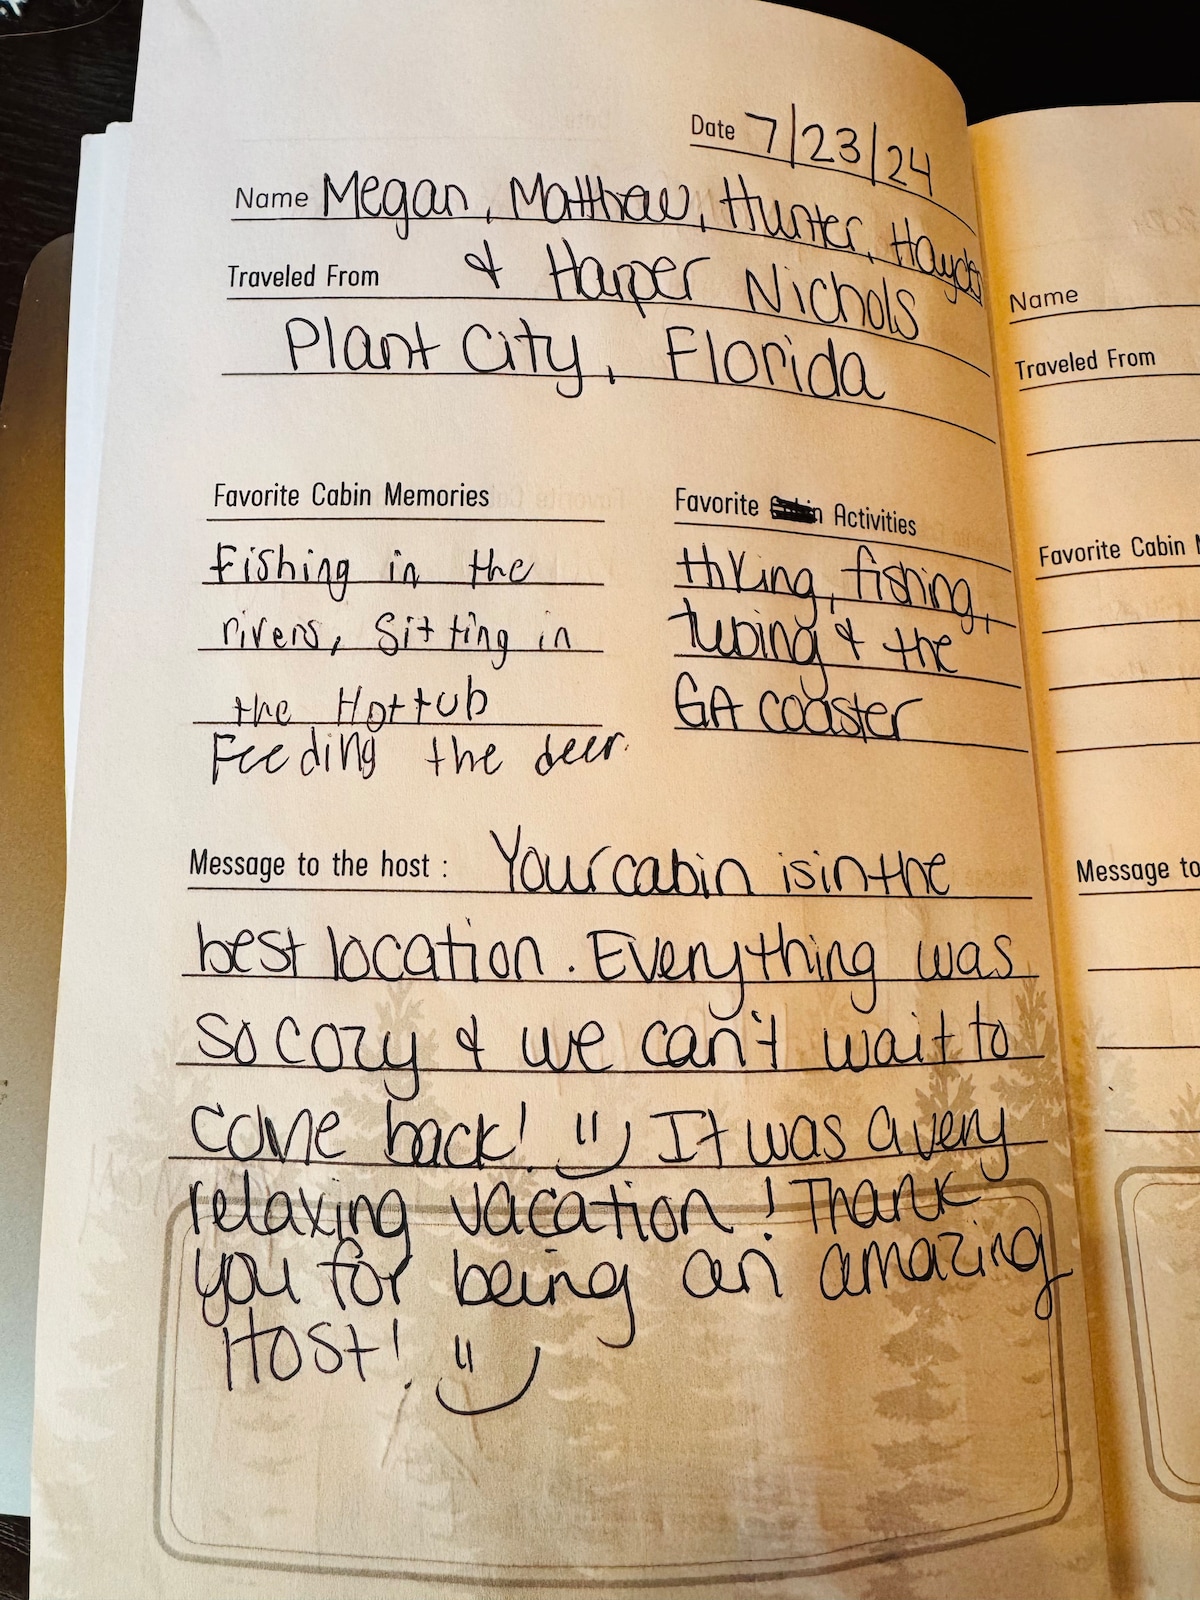 Date 7/23/24
Name Megan, Matthew, Hunter, Hayden
& Harper Nichols
Traveled From
Plant City, Florida
Favorite Cabin Memories
Fishing in the
rivers, Sitting in
the Hot tub
Feeding the deer.
Favorite Activities
Hiking, fishing,
tubing & the
GA coaster
Message to the host : Your cabin is in the
best location. Everything was
so cozy & we can't wait to
come back! It was a very
relaxing vacation! Thank
you for being an amazing
Host!
Name
Traveled From
Favorite Cabin
Message to